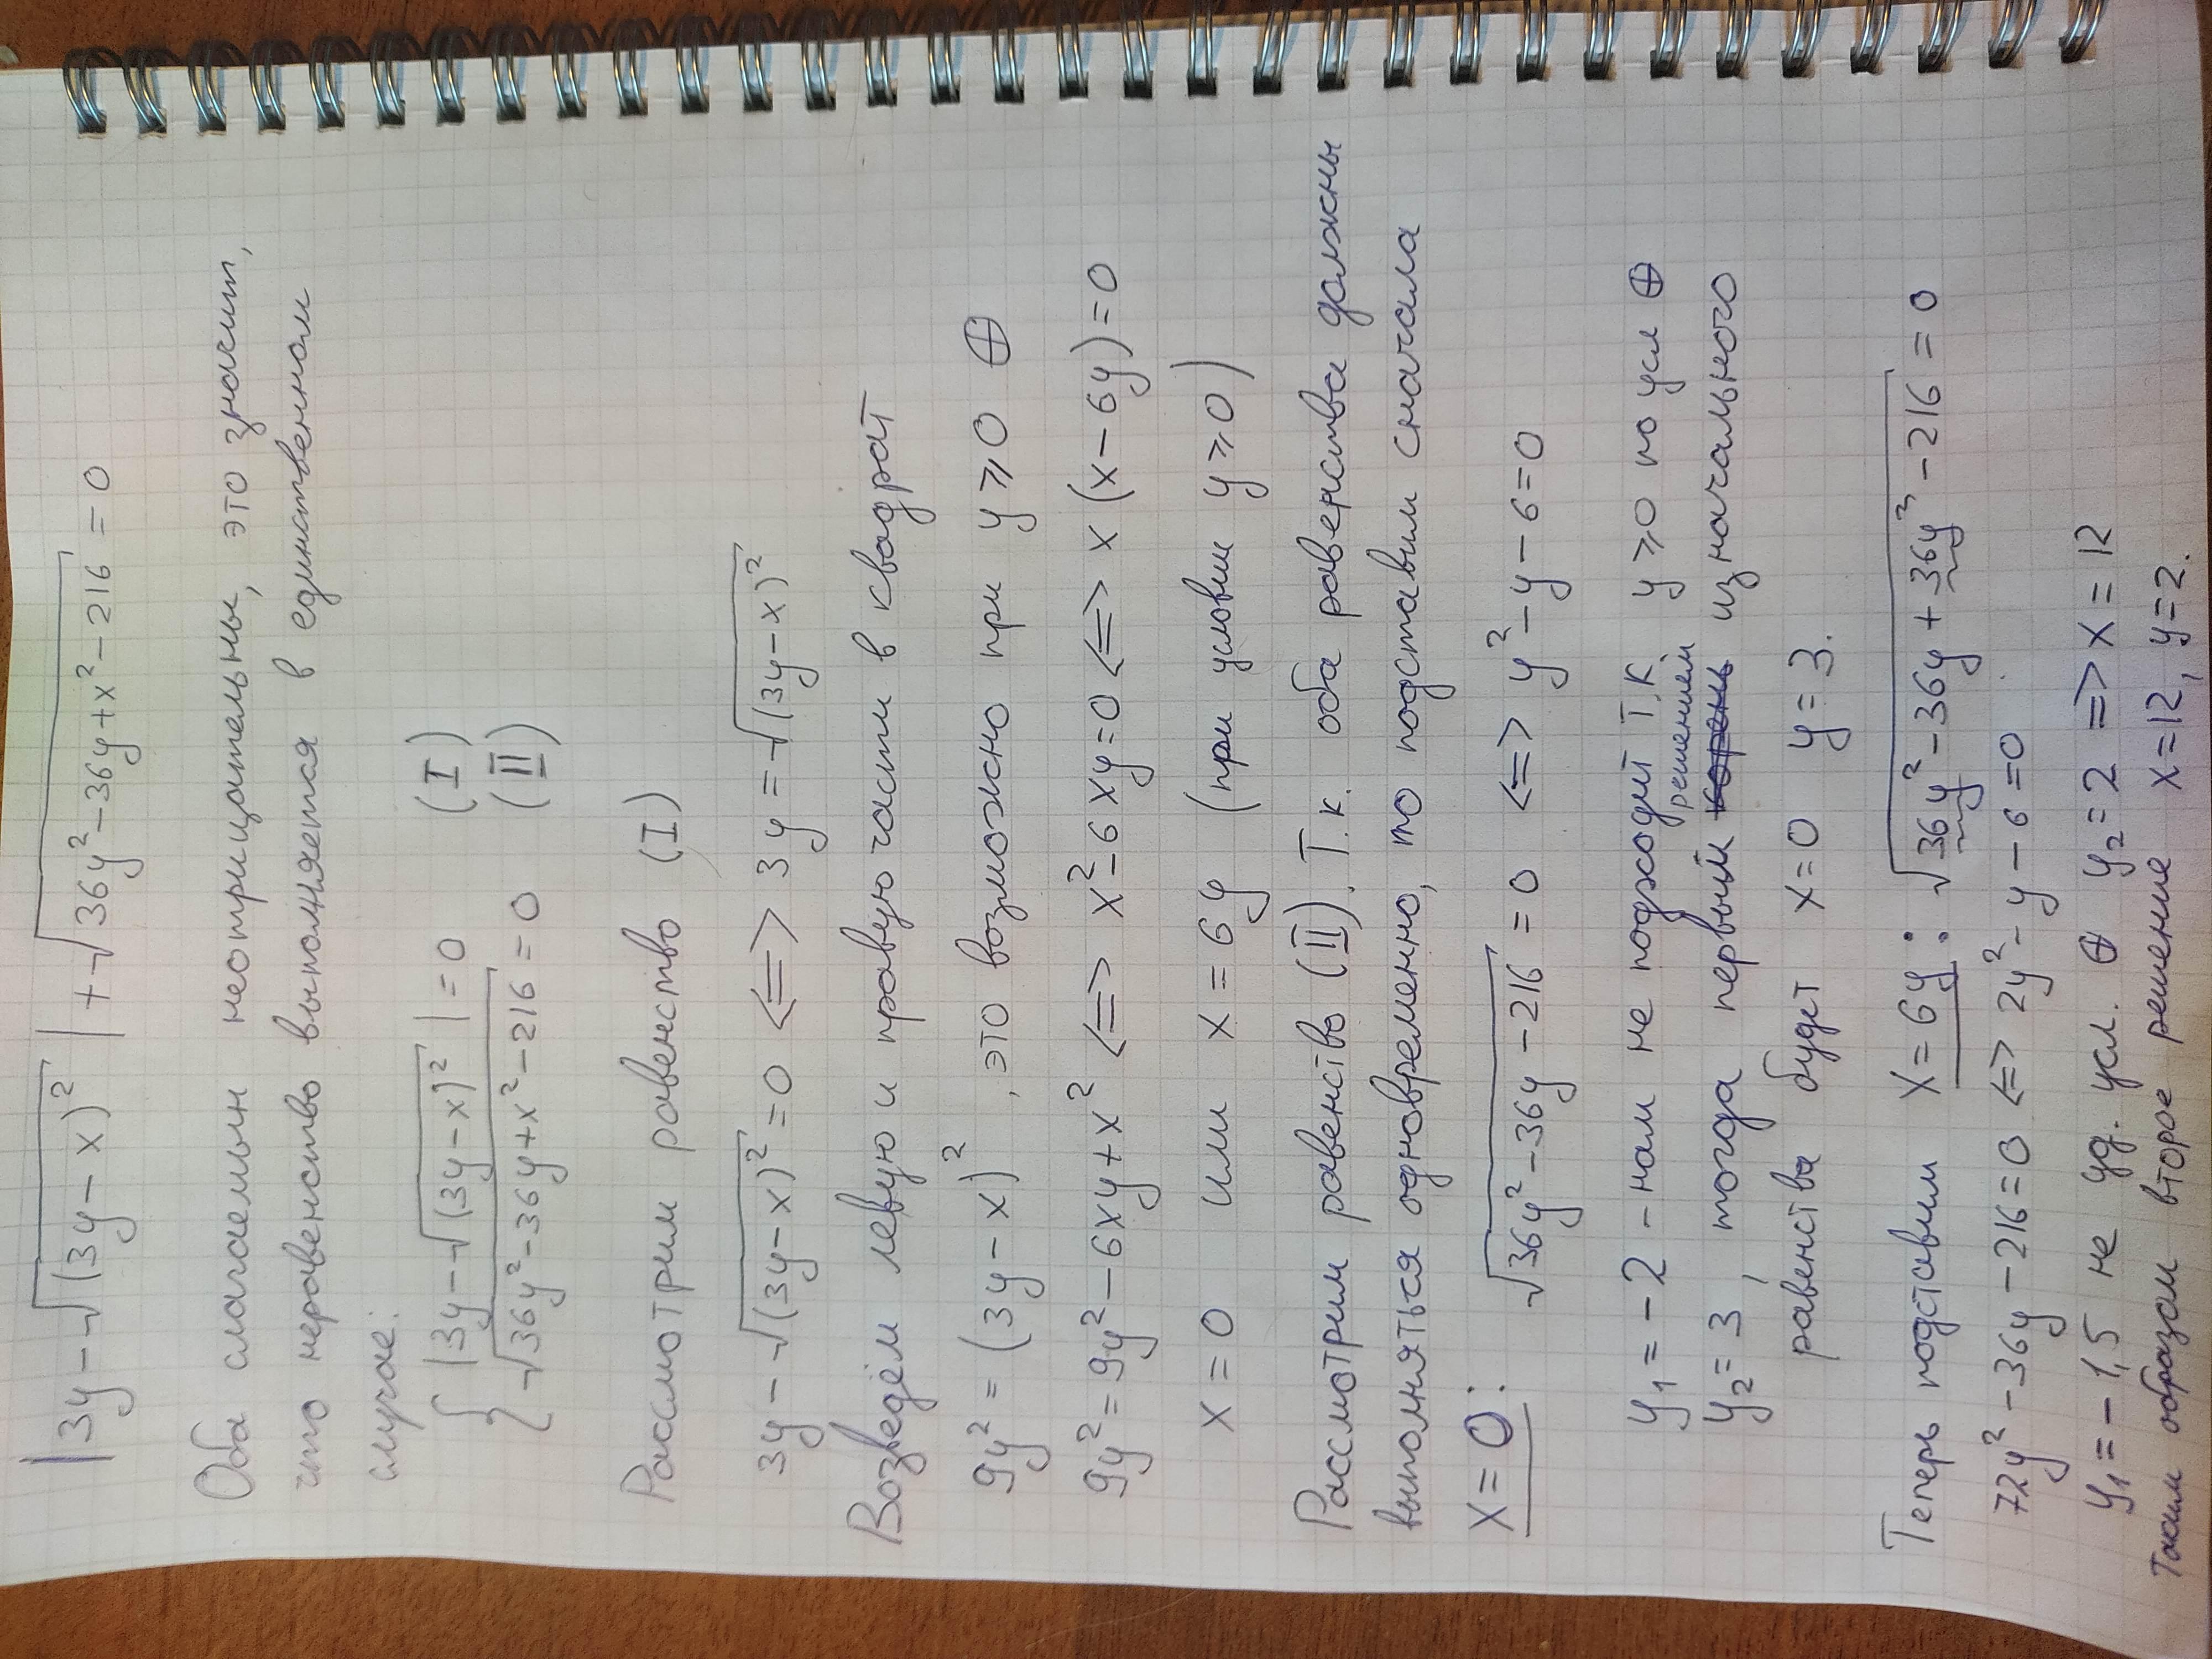 |3y-√(3y-x)²| + √36y²-36y+x²-216 = 0
Оба слагаемых неотрицательны, это значит,
что неравенство выполняется в единственном
случае:
{ |3y-√(3y-x)²| = 0 (I)
√36y²-36y+x²-216 = 0 (II)
Рассмотрим равенство (I)
3y-√(3y-x)² = 0 <=> 3y = √(3y-x)²
Возведём левую и правую части в квадрат
9y² = (3y-x)², это возможно при y ⩾ 0 ⊕
9y² = 9y²-6xy+x² <=> x²-6xy=0 <=> x(x-6y)=0
x = 0 или x = 6y (при условии y ⩾ 0)
Рассмотрим равенство (II). Т.к. оба равенства должны
выполняться одновременно, то подставим сначала
x = 0: √36y²-36y-216 = 0 <=> y²-y-6=0
y₁ = -2 - нам не подходит т.к. y ⩾ 0 по усл ⊕
y₂ = 3, тогда первый корень решением изначального
равенства будет x=0 y=3.
Теперь подставим x=6y: √36y²-36y+36y²-216 = 0
72y²-36y-216=0 <=> 2y²-y-6=0
y₁ = -1,5 не уд. усл. ⊕ y₂ = 2 => x = 12
Таким образом второе решение x=12, y=2.